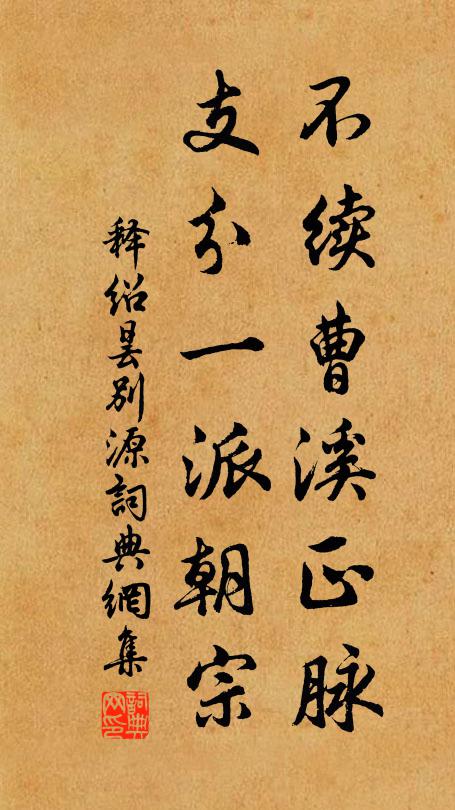 不续曹溪正脉
支分一派朝宗
释绍昙别源詞典網集
詞典網印